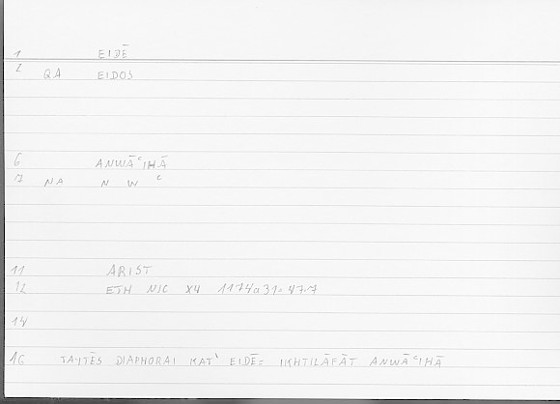 1 EIDĒ
2 QA EIDOS
6 ANWĀʿIHĀ
7 NA N W ʿ
11 ARIST
12 ETH NIC X4 1174a31=
14
16 DIAPHORAI KAT' EIDĒ= IKHTILĀFĀT ANWĀʿIHĀ